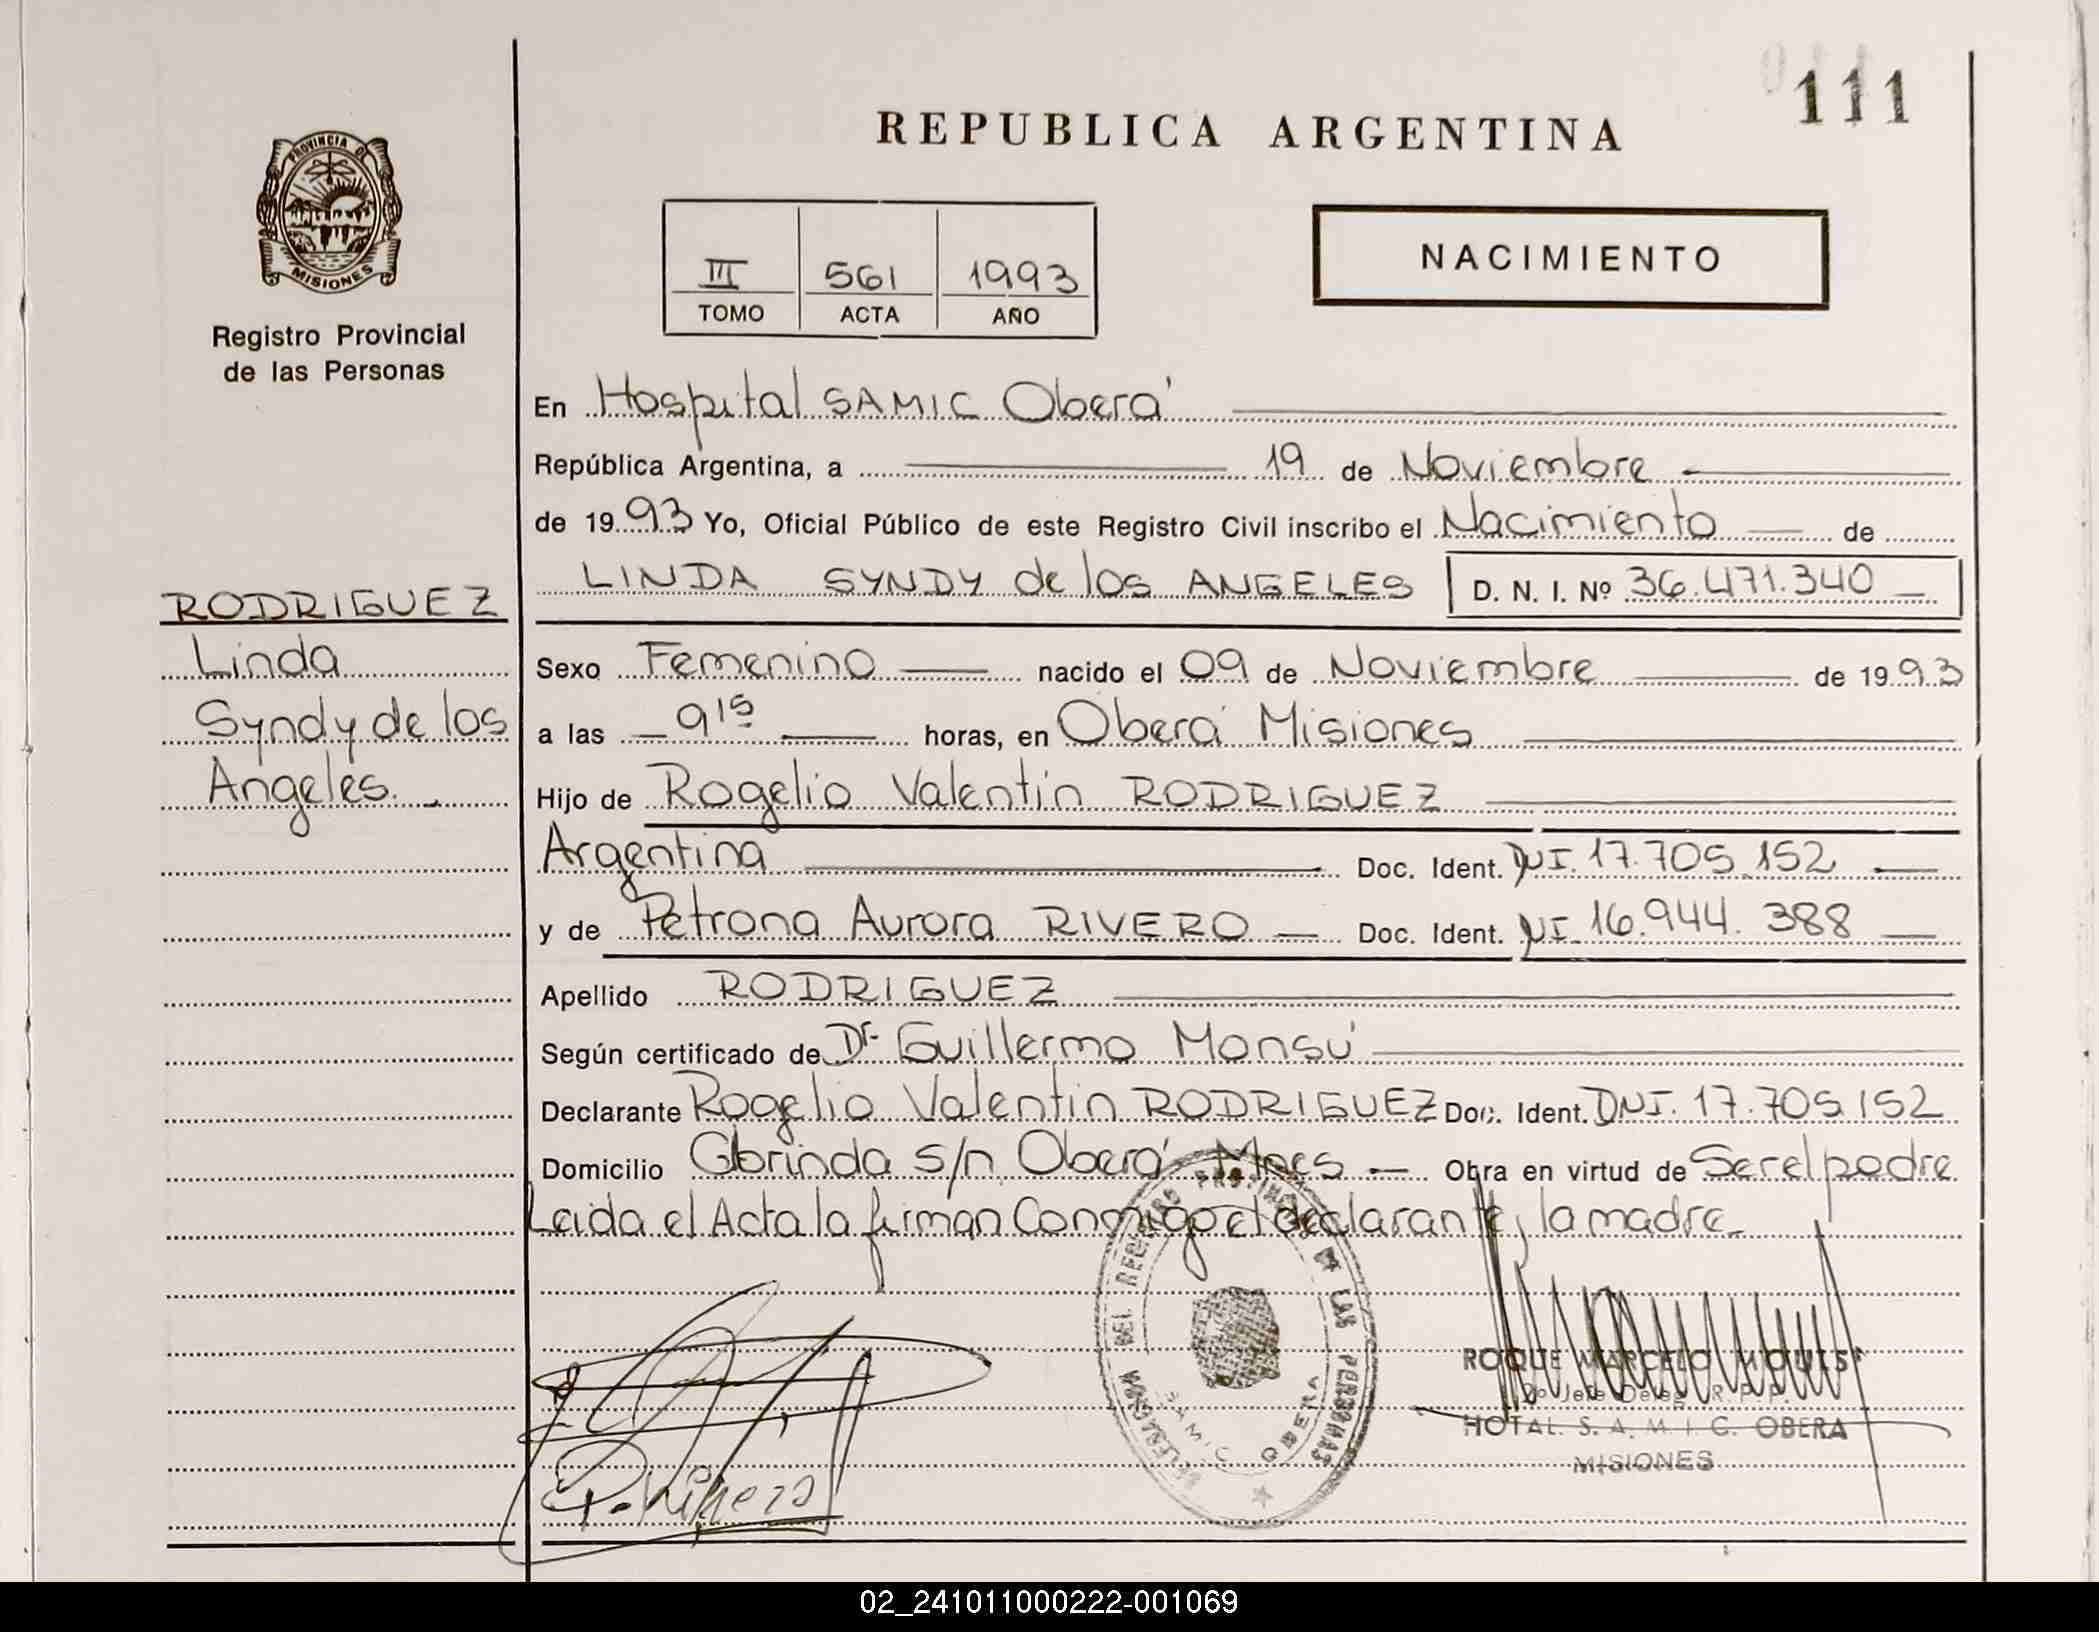 111
REPUBLICA ARGENTINA
PROVINCIA DE
MISIONES
Registro Provincial
de las Personas
III 561 1993
TOMO ACTA AÑO
NACIMIENTO
En Hospital SAMIC Oberá
República Argentina, a 19 de Noviembre
de 1993 Yo, Oficial Público de este Registro Civil inscribo el Nacimiento de
LINDA SYNDY de los ANGELES D. N. I. Nº 36.471.340
RODRIGUEZ
Linda
Syndy de los
Angeles.
Sexo Femenino nacido el 09 de Noviembre de 1993
a las 9 15 horas, en Oberá Misiones
Hijo de Rogelio Valentín RODRIGUEZ
Argentina Doc. Ident. DNI. 17.705.152
y de Petrona Aurora RIVERO Doc. Ident. NI. 16.944.388
Apellido RODRIGUEZ
Según certificado de Dr. Guillermo Monsú
Declarante Rogelio Valentin RODRIGUEZ Doc. Ident. DNI. 17.705.152
Domicilio Glorinda s/n Oberá Mnes Obra en virtud de Ser el padre
Leida el Acta la firman Conmigo el declarante, la madre
DEL REGISTRO PROVINCIAL DE LAS PERSONAS
SAMIC OBERA
ROQUE MARCELO
2º Jefe Deleg. R.P.P.
HOTAL. S. A. M. I. C. OBERA
MISIONES
02_241011000222-001069